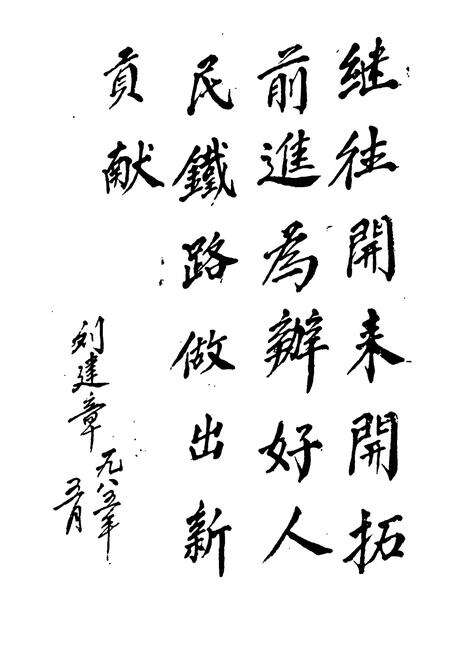 继往開来開拓
前進為辦好人
民鐵路做出新
贡献
刘建章
一九八五年
五月